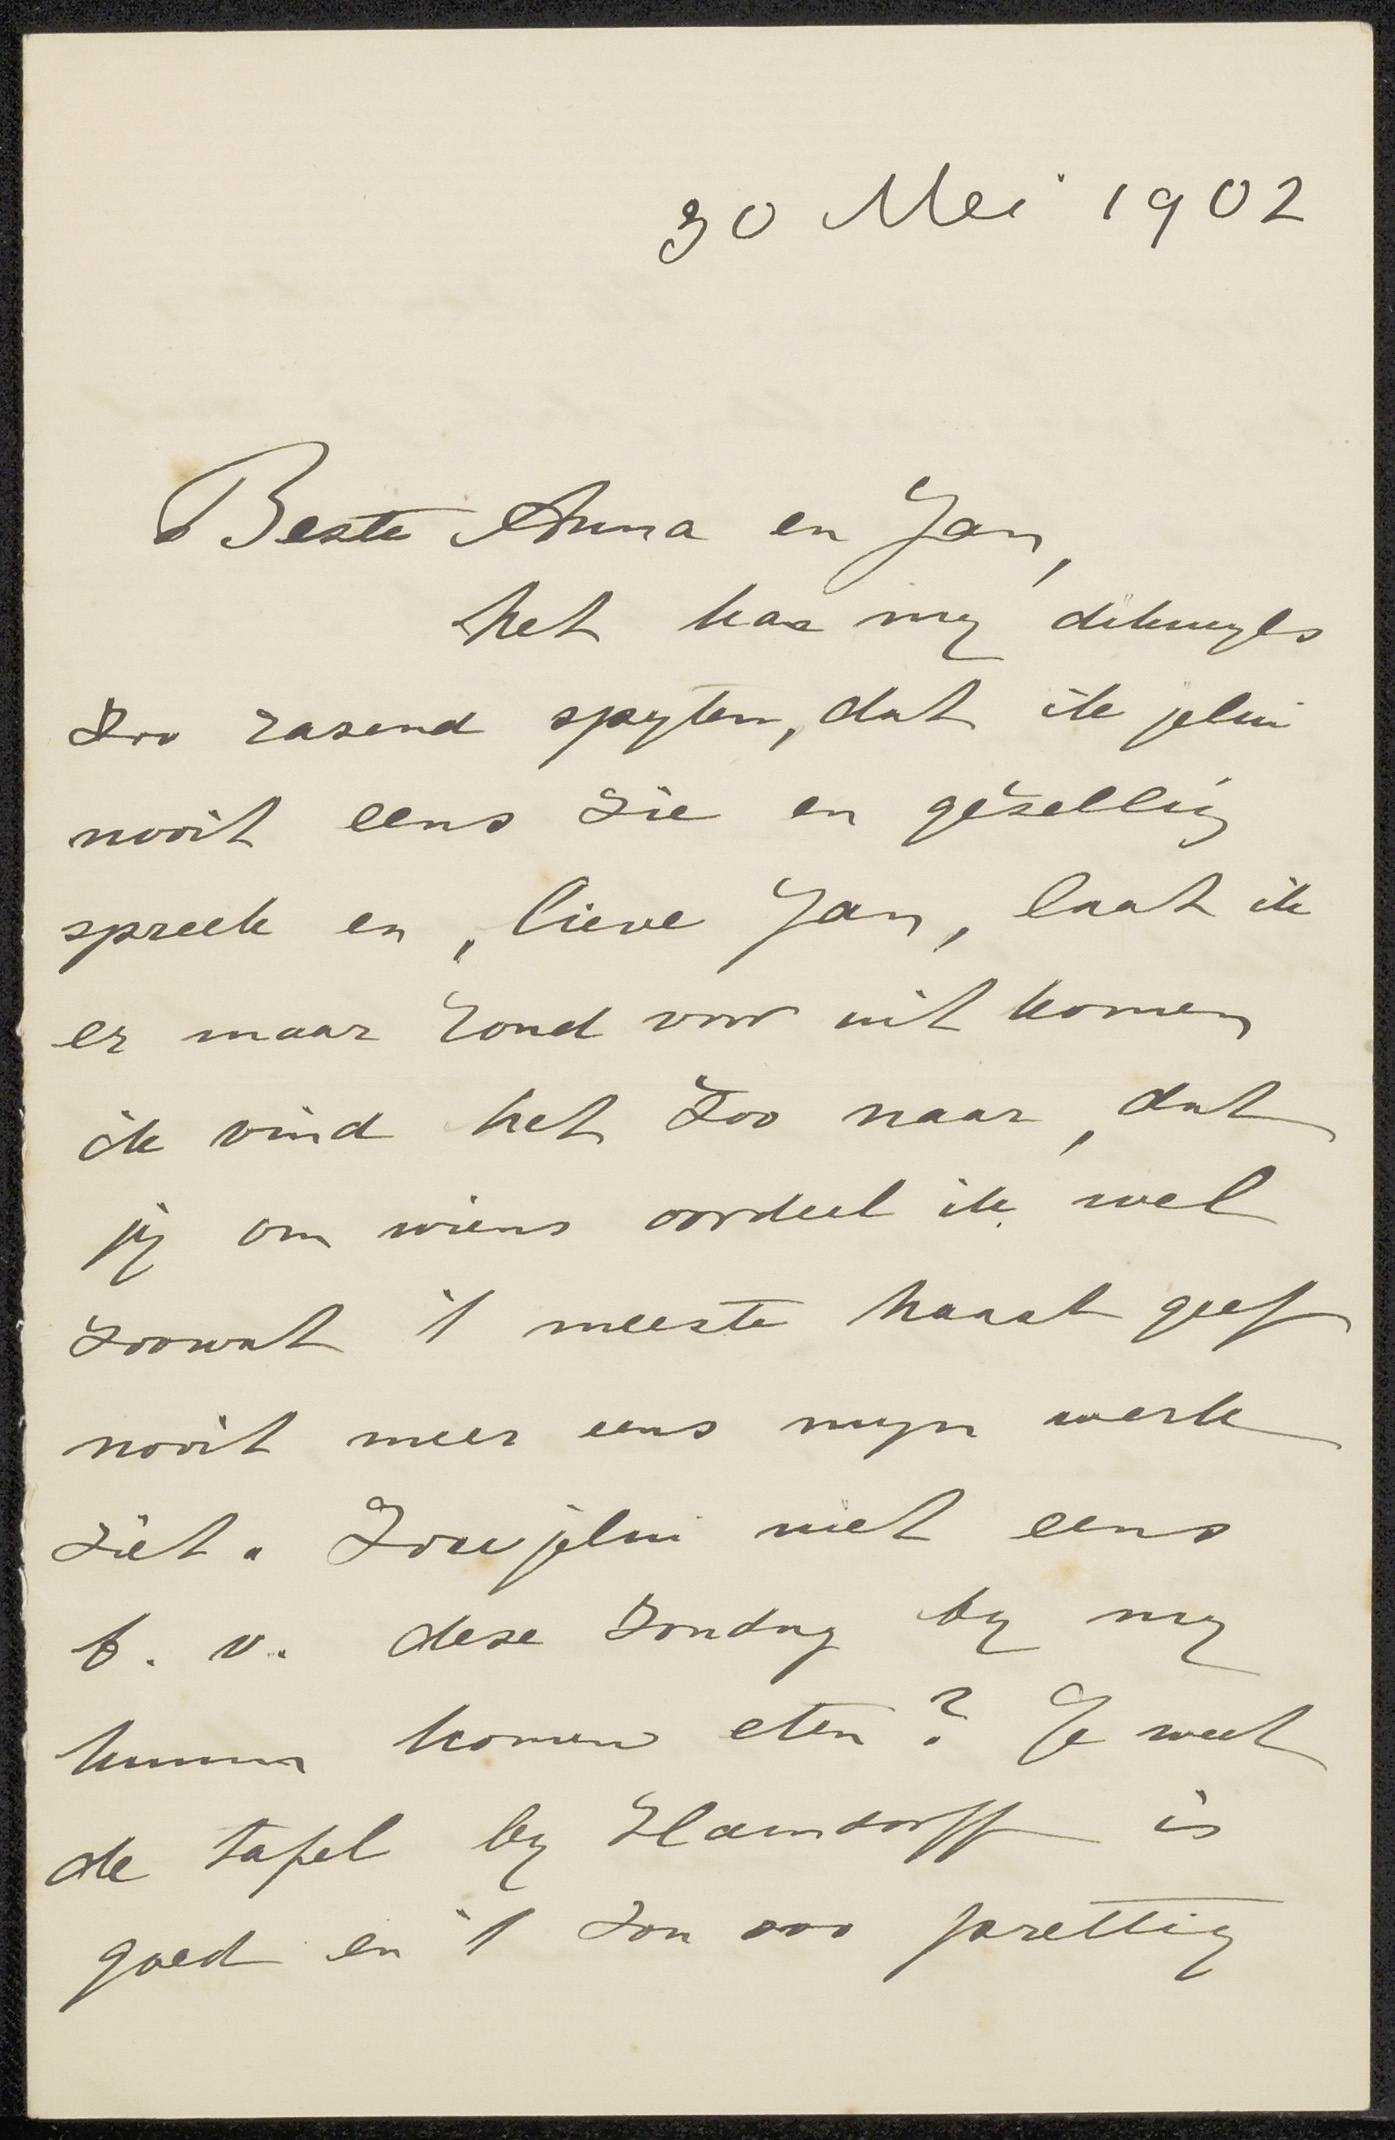 30 Mei 1902
Beste Anna en Jan,
het kan my dikwyls
zoo razend spyten, dat ik jelui
nooit eens zie en gezellig
spreek en, lieve Jan, laat ik
er maar rond voor uit komen
ik vind het zoo naar, dat
jy om wiens oordeel ik wel
zoowat 't meeste haast geef
nooit meer eens myn werk
ziet. Zou jelui niet eens
b. v. deze Zondag by my
kunnen komen eten? Je weet
de tafel by Hamdorff is
goed en 't zou zoo prettig